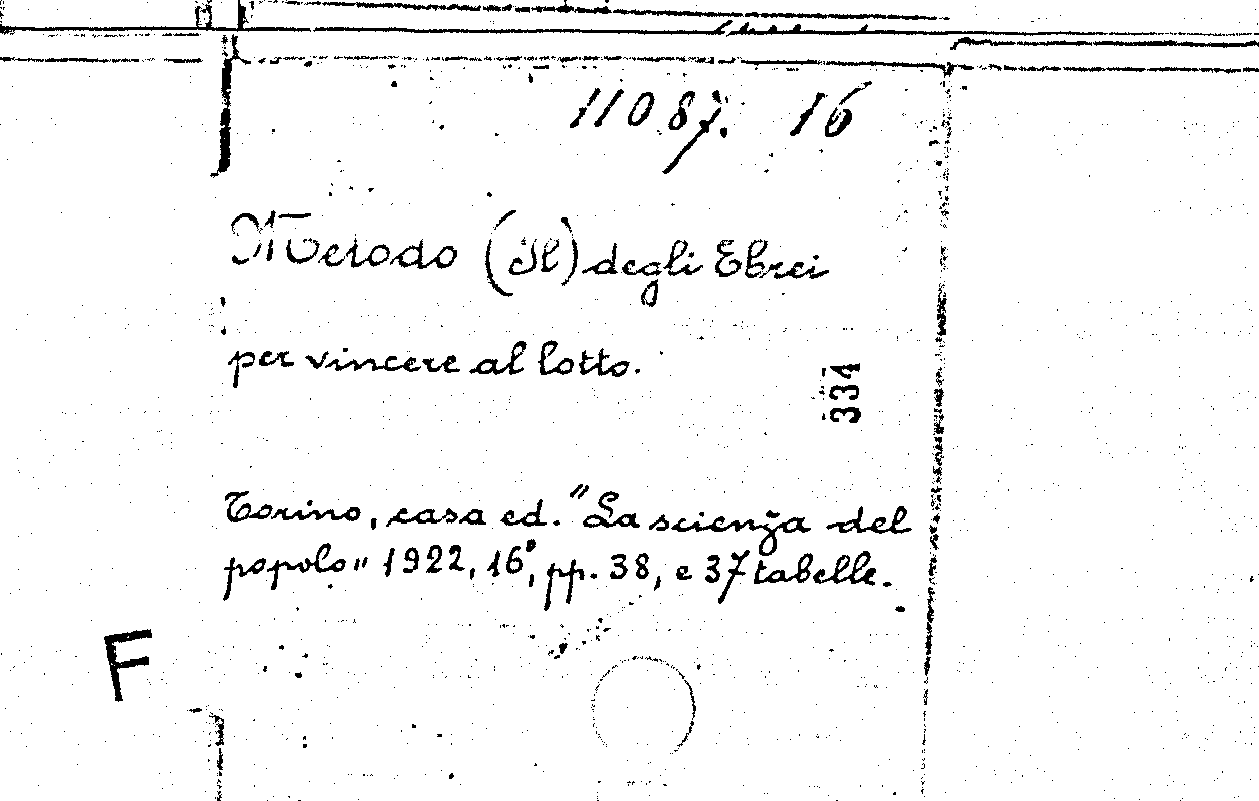 11087. 16
Metodo (Il) degli Ebrei
per vincere al lotto.
334
Torino, casa ed. "La scienza del
popolo" 1922, 16°, pp. 38, e 37 tabelle.
F